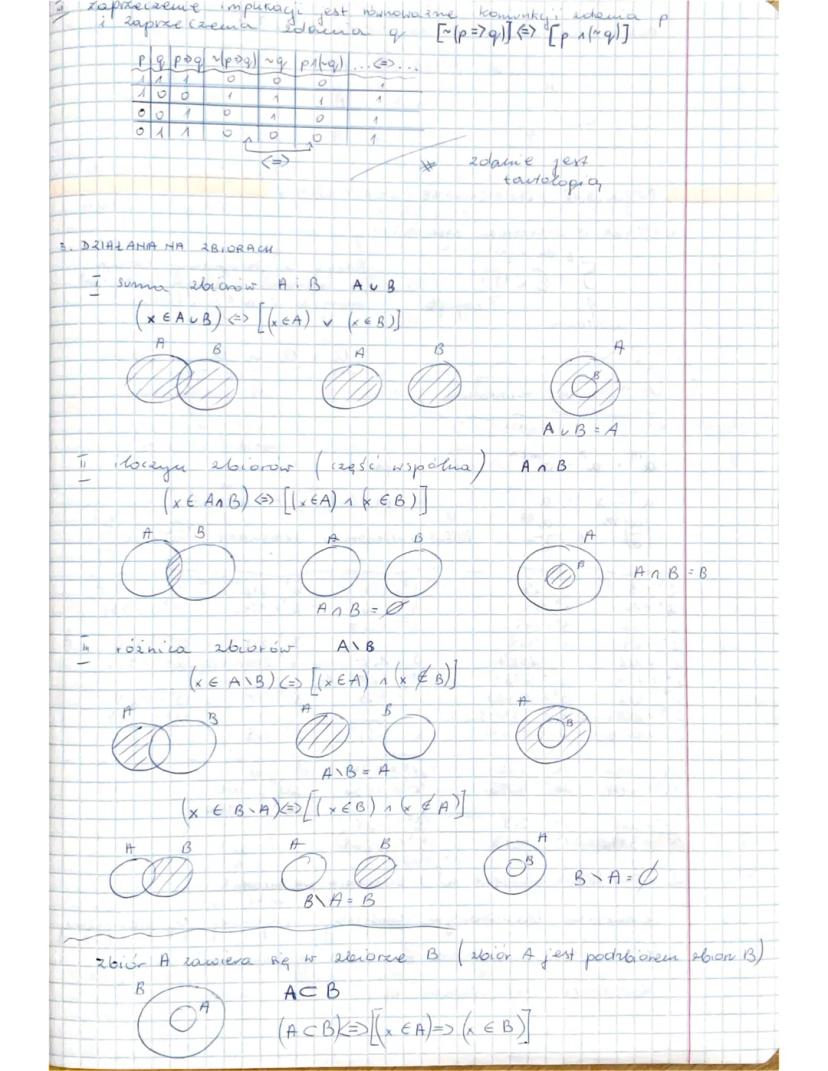 zaprzeczenie implikacji jest równoważne koniunkcji zdania p
i zaprzeczenia zdania q [~(p=>q)] <=> [p ∧ (~q)]
p q p=>q ~(p=>q) ~q p∧(~q) ...<=>...
1 1 1 0 0 0 1
1 0 0 1 1 1 1
0 0 1 0 1 0 1
0 1 1 0 0 0 1
<=>
* zdanie jest
tautologią
DZIAŁANIA NA ZBIORACH
I suma zbiorów A i B A ∪ B
(x ∈ A ∪ B) <=> [(x ∈ A) ∨ (x ∈ B)]
A B A B A B
A ∪ B = A
II iloczyn zbiorów (część wspólna) A ∩ B
(x ∈ A ∩ B) <=> [(x ∈ A) ∧ (x ∈ B)]
A B A B A B
A ∩ B = B
A ∩ B = ∅
III różnica zbiorów A \ B
(x ∈ A \ B) <=> [(x ∈ A) ∧ (x ∉ B)]
A B A B A B
A \ B = A
(x ∈ B \ A) <=> [(x ∈ B) ∧ (x ∉ A)]
A B A B A B
B \ A = ∅
B \ A = B
zbiór A zawiera się w zbiorze B (zbiór A jest podzbiorem zbioru B)
B A A ⊂ B
(A ⊂ B) <=> [(x ∈ A) => (x ∈ B)]